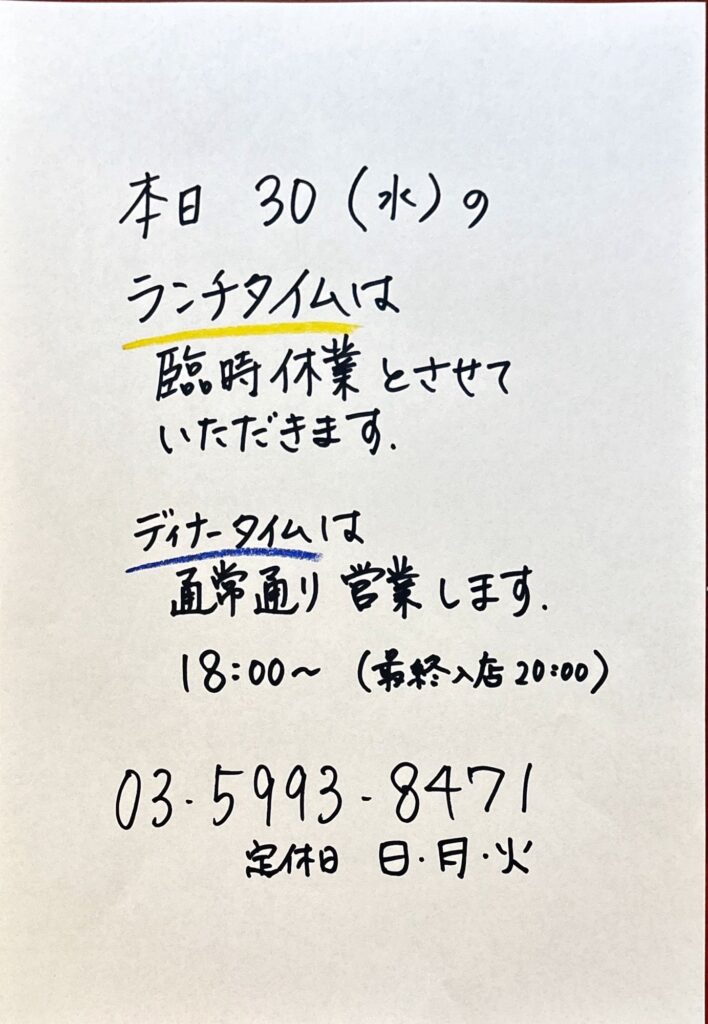 本日 30(水)の
ランチタイムは
臨時休業とさせて
いただきます.
ディナータイムは
通常通り営業します.
18:00〜 (最終入店20:00)
03-5993-8471
定休日 日・月・火